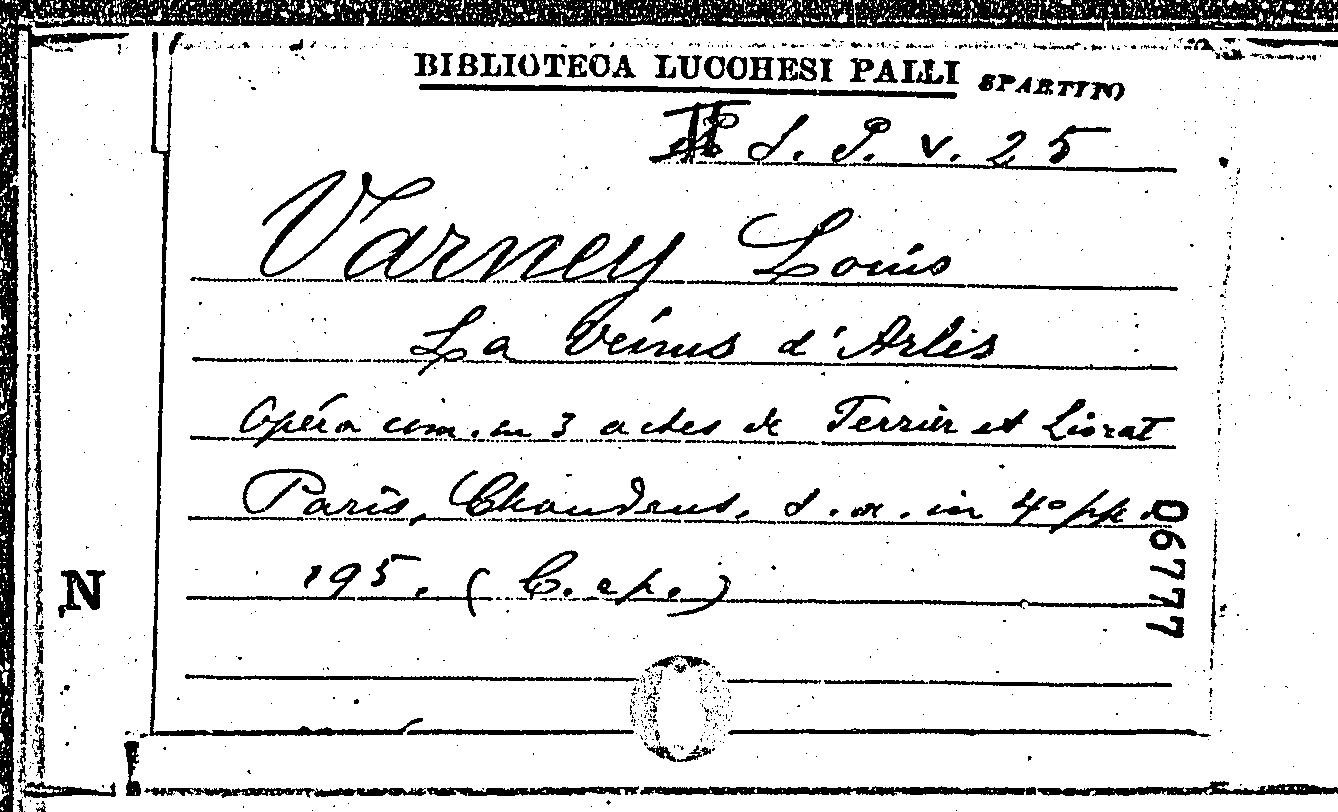 BIBLIOTECA LUCCHESI PALLI SPARTITO
S. P. v. 25
Varney Louis
La Vénus d'Arles
Opéra com. en 3 actes de Ferrier et Liorat
Paris, Choudens, s. a. in 4° pp.
195. (C. ep.)
06777
N